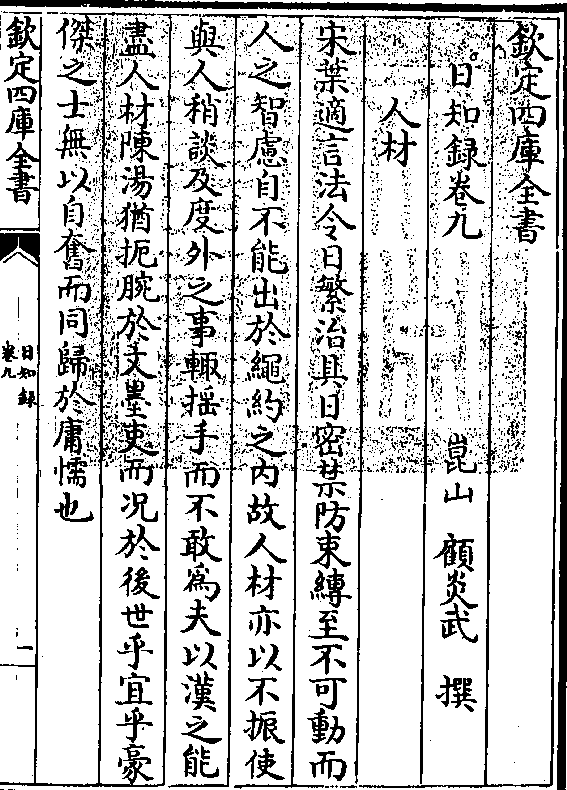 欽定四庫全書
日知録卷九 崑山 顧炎武 撰
人材
宋葉適言法令日繁治具日密禁防束縛至不可動而
人之智慮自不能出於繩約之内故人材亦以不振使
與人稍談及度外之事輒揺手而不敢為夫以漢之能
盡人材陳湯猶扼腕於文墨吏而况於後世乎宜乎豪
傑之士無以自奮而同歸於庸懦也
欽定四庫全書
日知録
卷九
一